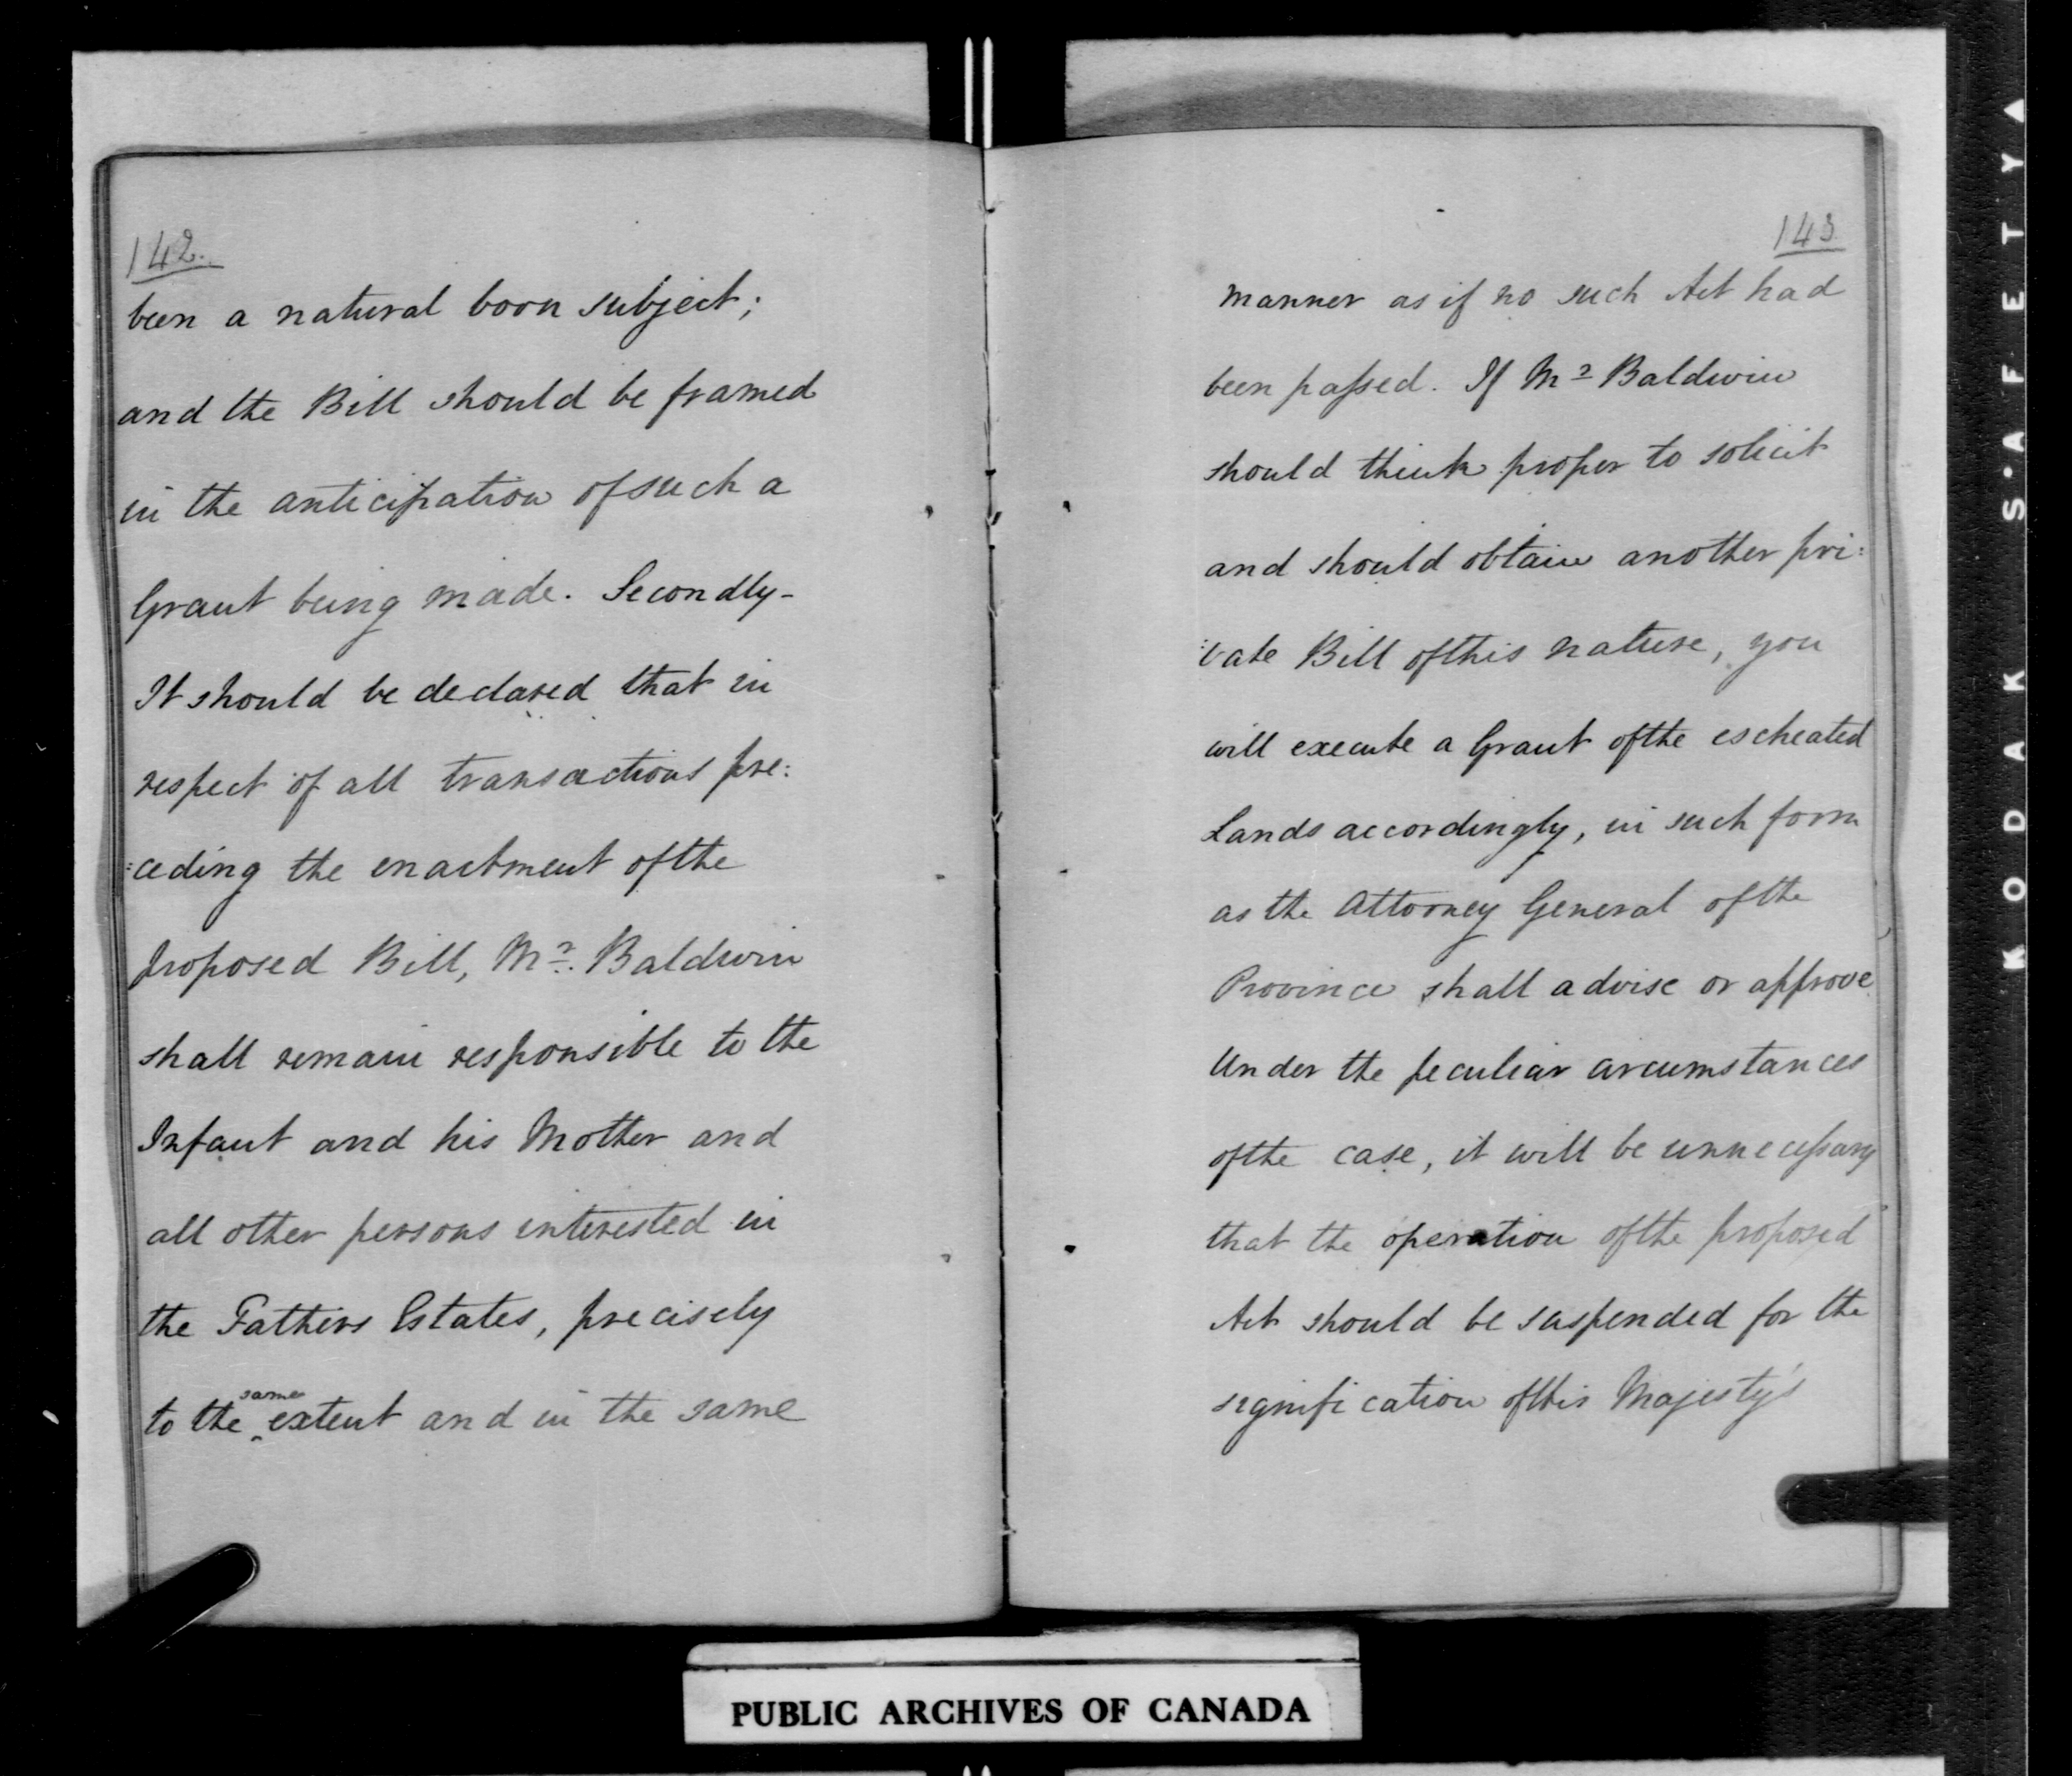 142.
been a natural born subject;
and the Bill should be framed
in the anticipation of such a
Grant being made. Secondly-
It should be declared that in
respect of all transactions pre:
:ceding the enactment of the
proposed Bill, Mr. Baldwin
shall remain responsible to the
Infant and his Mother and
all other persons interested in
the Fathers Estates, precisely
to the same extent and in the same
143
manner as if no such Act had
been passed. If Mr Baldwin
should think proper to solicit
and should obtain another pri:
:vate Bill of this nature, you
will execute a Grant of the escheated
Lands accordingly, in such form
as the Attorney General of the
Province shall advise or approve
Under the peculiar circumstances
of the case, it will be unnecessary
that the operation of the proposed
Act should be suspended for the
signification of His Majesty's
PUBLIC ARCHIVES OF CANADA
KODAK S'AFETY